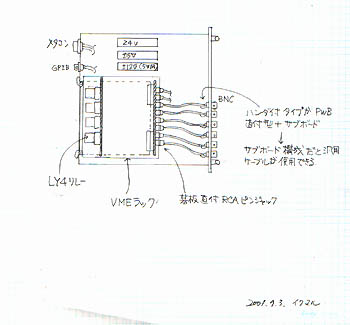 メタコン
GPIB
24V
±5V
±12V(5VA)
BNC
ハンダ付タイプか PWB
直付型+サブボード
サブボード構成だと汎用
ケーブルが使用できる
LY4リレー
VMEラック
基板直付RCAピンジャック
2001.9.3.